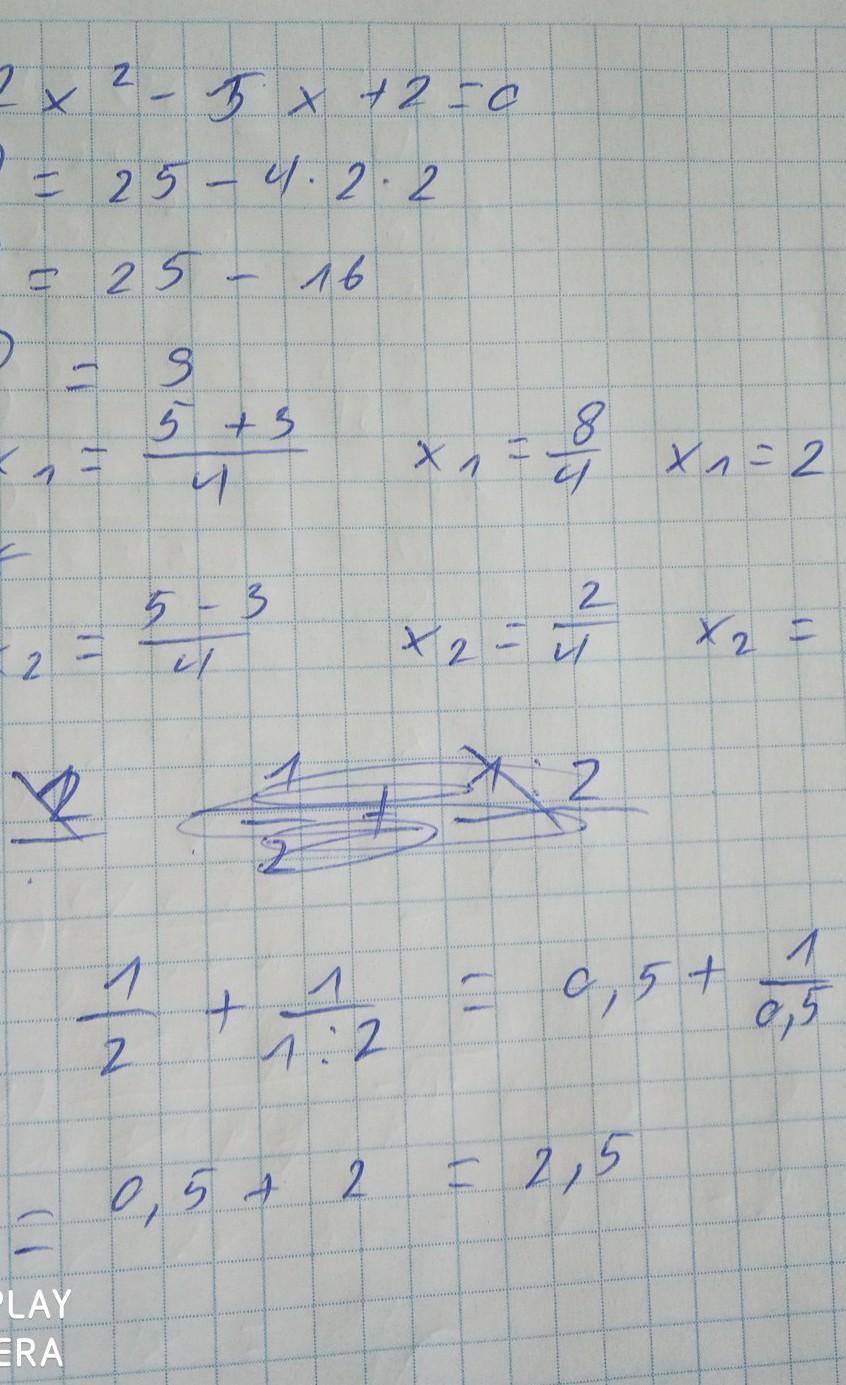 2x² - 5x + 2 = 0
= 25 - 4 · 2 · 2
= 25 - 16
= 9
x₁ = (5 + 3)/4 x₁ = 8/4 x₁ = 2
x₂ = (5 - 3)/4 x₂ = 2/4 x₂ =
1/2 + 1/(1 : 2) = 0,5 + 1/0,5
= 0,5 + 2 = 2,5
PLAY
ERA